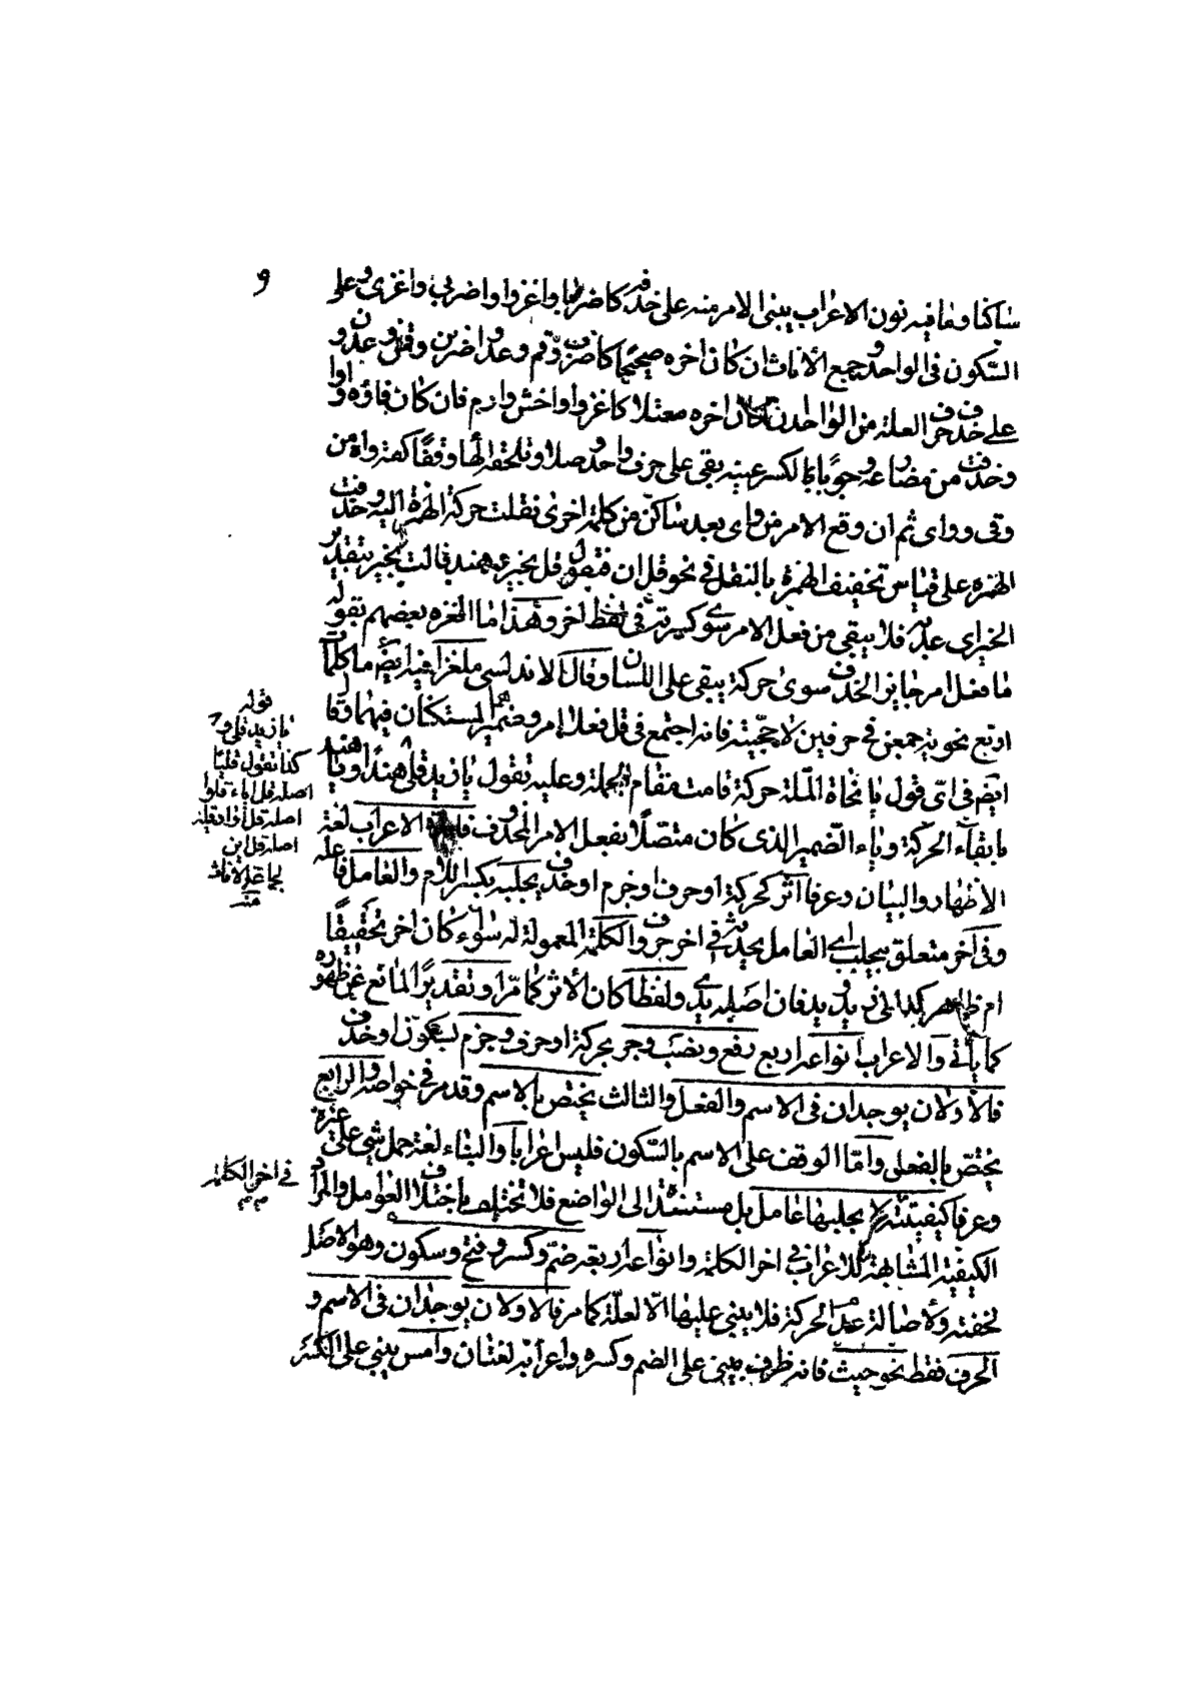 ساكنا وما فيه نون الاعراب يبنى الامر منه على حذفه كاضربا واغزوا واضربى واغزى وعلى
السّكون فى الواحد وجمع الأناث ان كان اخره صحيحًا كاضرب وقم وعد واضربن وقمن وعدن و
على حذف حرف العلة من الواحد ان كان اخره معتلا كاغز واخش وارم فان كان فاؤه واوا
وحذفت من مضارعه وجوبًا بالكسر عينه يبقى على حرف واحد وصلا وتلحقه الهاء وقفًا كقه واه من
وقى ووأى ثم ان وقع الامر من وأى بعد ساكن من كلمة اخرى نقلت حركة الهمزة اليه وحذفت
الهمزه على قياس تخفيف الهمزة بالنقل فى نحو قل ان فتقول قل بخير يا هند قالت بخير بتقدير
الخير اى عديه فلا يبقى من فعل الامر سوى كسرته فى لفظ اخر وهذا ما الغزه بعضهم بقوله
ما فعل امر جايز الحذف سوى حركة يبقى على اللسان وقال الاندلسى ملغزا فيه ايضًا ما كلمات
اربع نحوية جمعن فى حرفين لاحجيّة فانه اجتمع فى قل فعلا امر وضميرا لمستكنان فيهما وقا
ايضم فى اىّ قول يا نحاة الملة حركة قامت مقام الجملة وعليه تقول يا زيد قل هندا ويا هند
بابقاء الحركة وياء الضمير الذى كان متصلًا بفعل الامر المحذوف الاعراب لغة
الاظهار والبيان وعرفا اثر كحركة او حرف او جزم او حذف يجلبه بكسر اللام والعامل فاعله
وفى آخر متعلق بيجلب اى العامل يحدثه فى اخر حروف الكلمة المعمولة له سواء كان اخر تحقيقًا
ام كدال زيد ويد فان اصله يدى ولفظا كان الأثر كما مرّ او تقديرًا لمانع عن ظهوره
كما يأتى والاعراب انواعه اربع رفع ونصب وجر بحركة او حرف وجزم بسكون او حذف
فالأولان يوجدان فى الاسم والفعل والثالث يختص بالاسم وقد مر فى خواصه والرابع
يختص بالفعل وامّا الوقف على الاسم بالسّكون فليس اعرابا والبناء لغة حمل شى على غيره
وعرفا كيفيّة لا يجلبها عامل بل مستندة الى الواضع فلا تختلف باختلاف العوامل والمراد
الكيفية المشابهة للاعراب فى اخر الكلمة وانواعه اربعة ضمّ وكسر وفتح وسكون وهو الاصل
لخفته ولأصالة عدم الحركة فلا يبنى عليها الّا لعلّة كما مر فالاولان يوجدان فى الاسم و
الحرف فقط نحو حيث فانه ظرف مبنى على الضم وكسره واعرابه لغتان وامس بنى على الكسر
قوله
يا زيد قل و
كذا تقول قليا
اصله قل إياء قلوا
اصله قل اوا وقلن
اصله قل اين
لجماعة الاناث
منه
فى اخر الكلمة